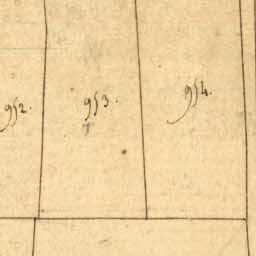 952.
953.
954.